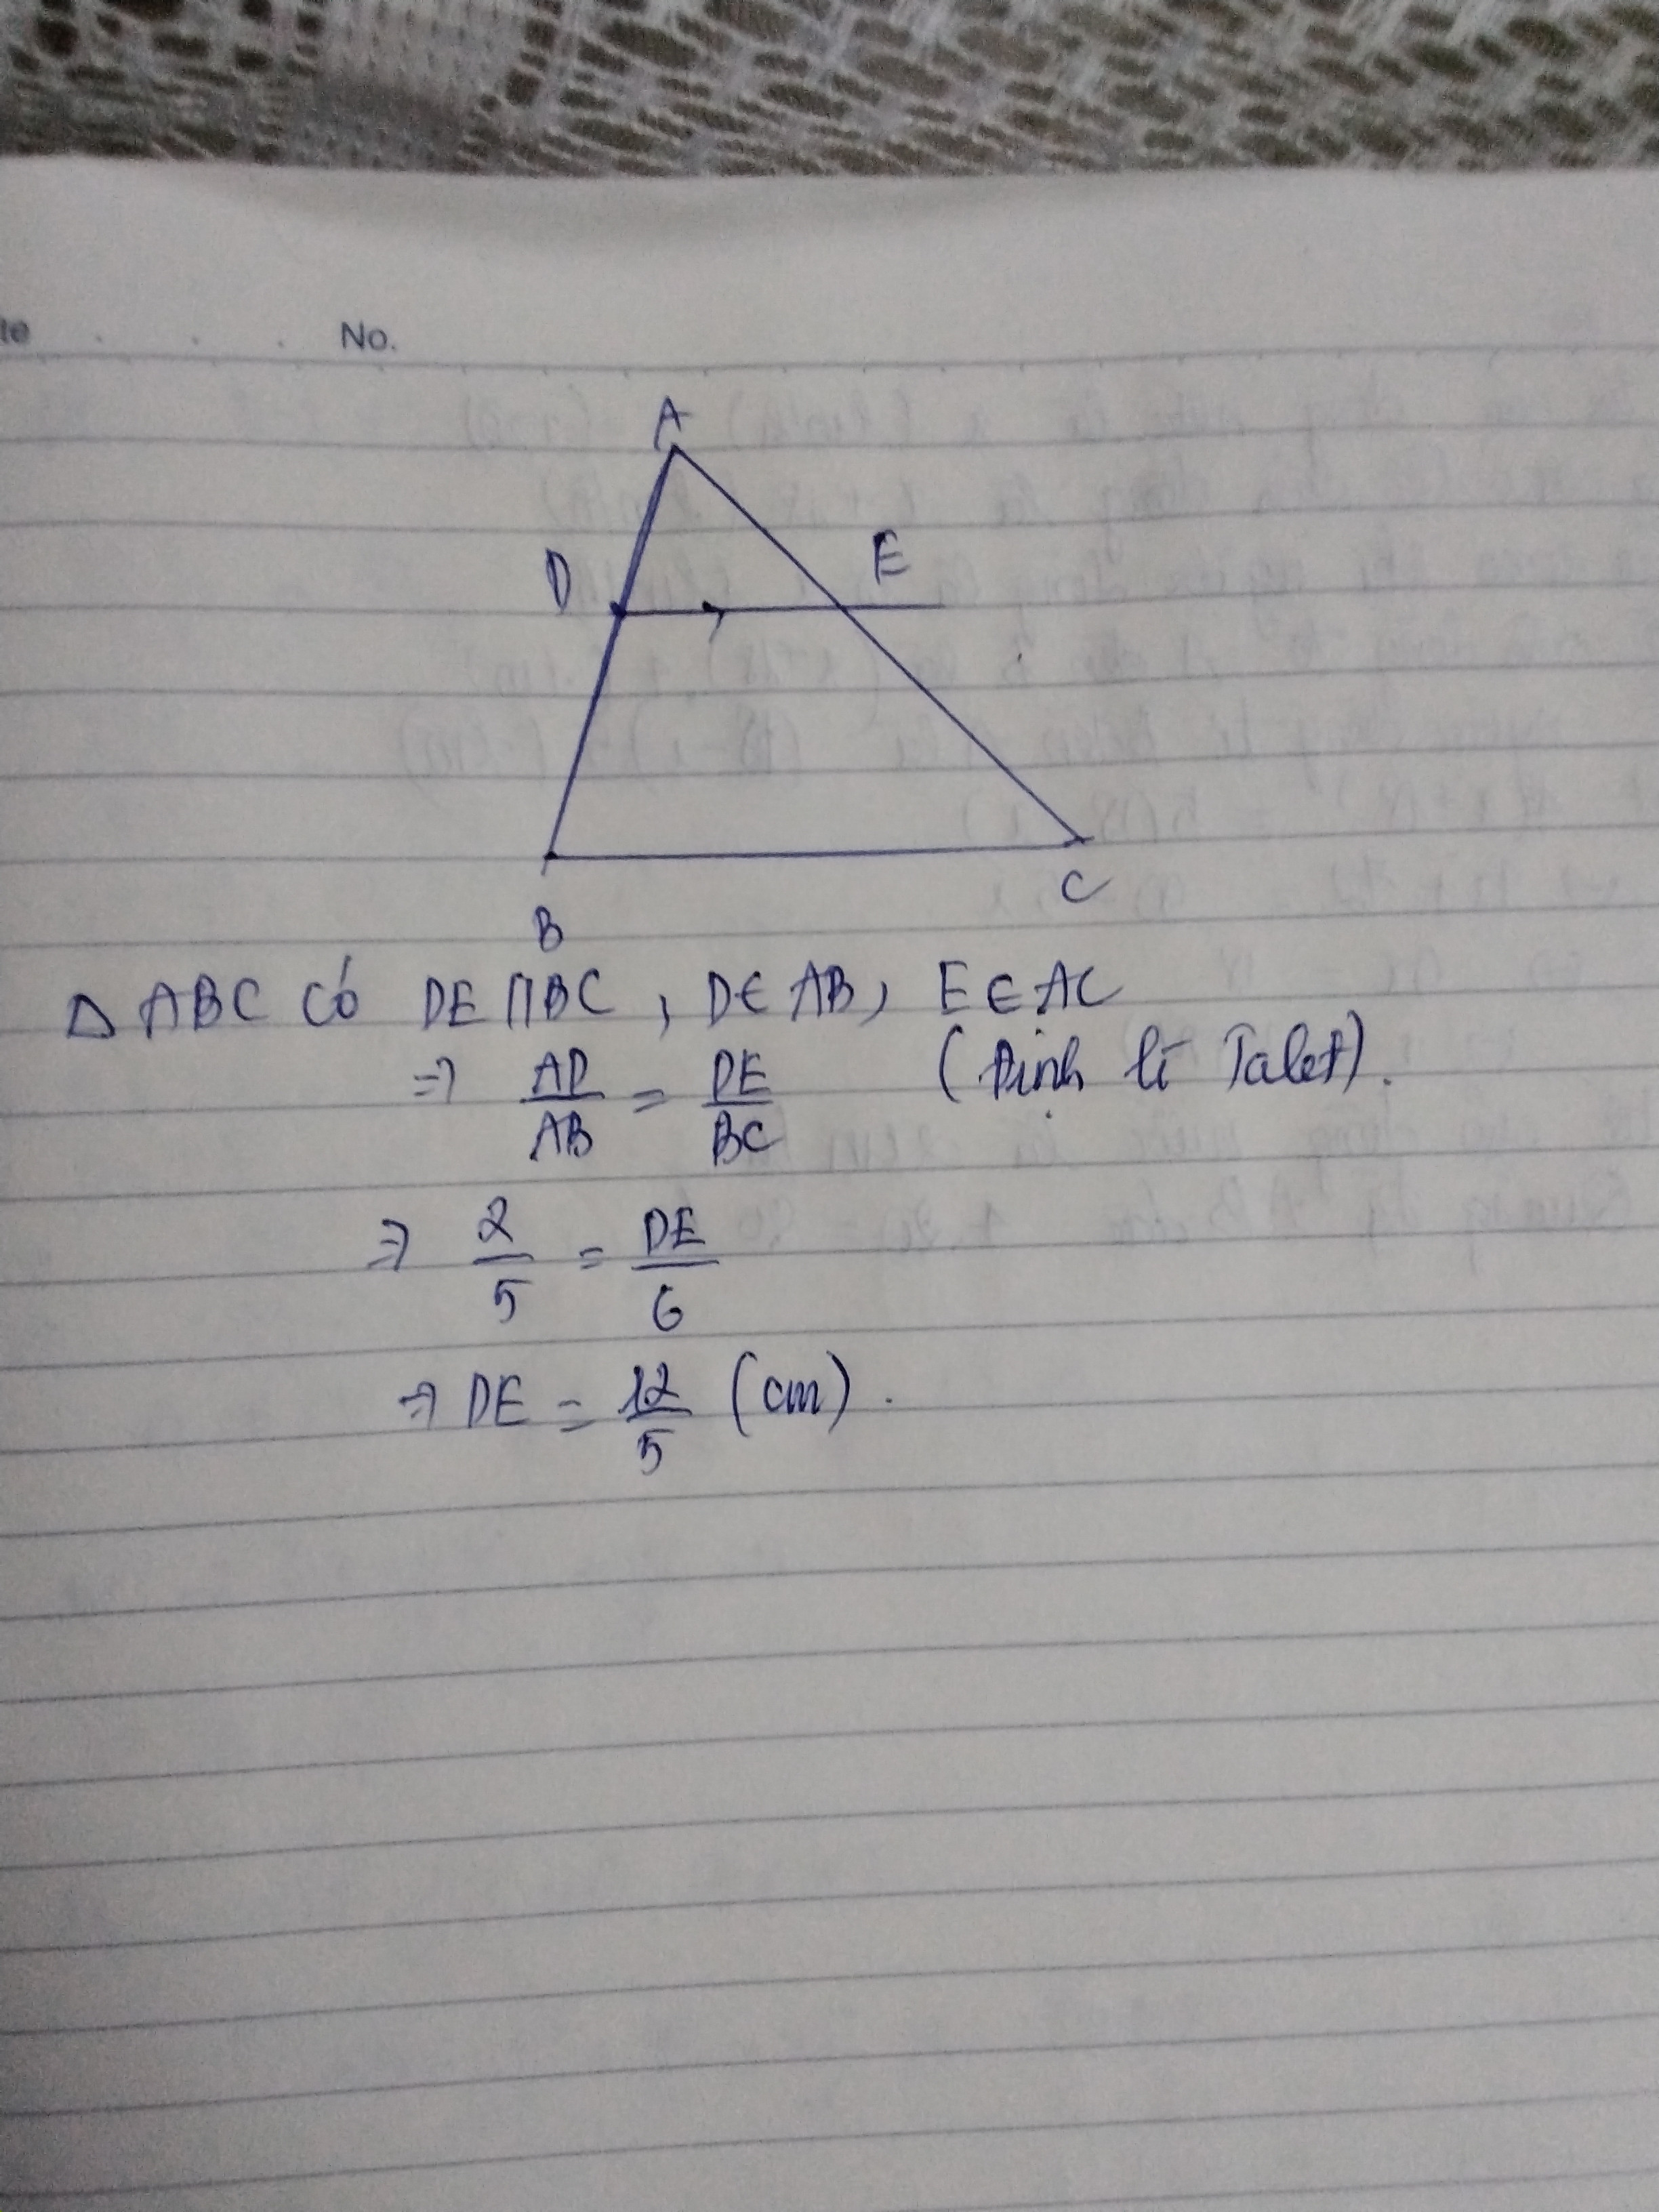 te No.
A
D E
B C
△ ABC có DE // BC , D ∈ AB, E ∈ AC
=> AD/AB = DE/BC (Định lí Talet).
=> 2/5 = DE/6
=> DE = 12/5 (cm) .